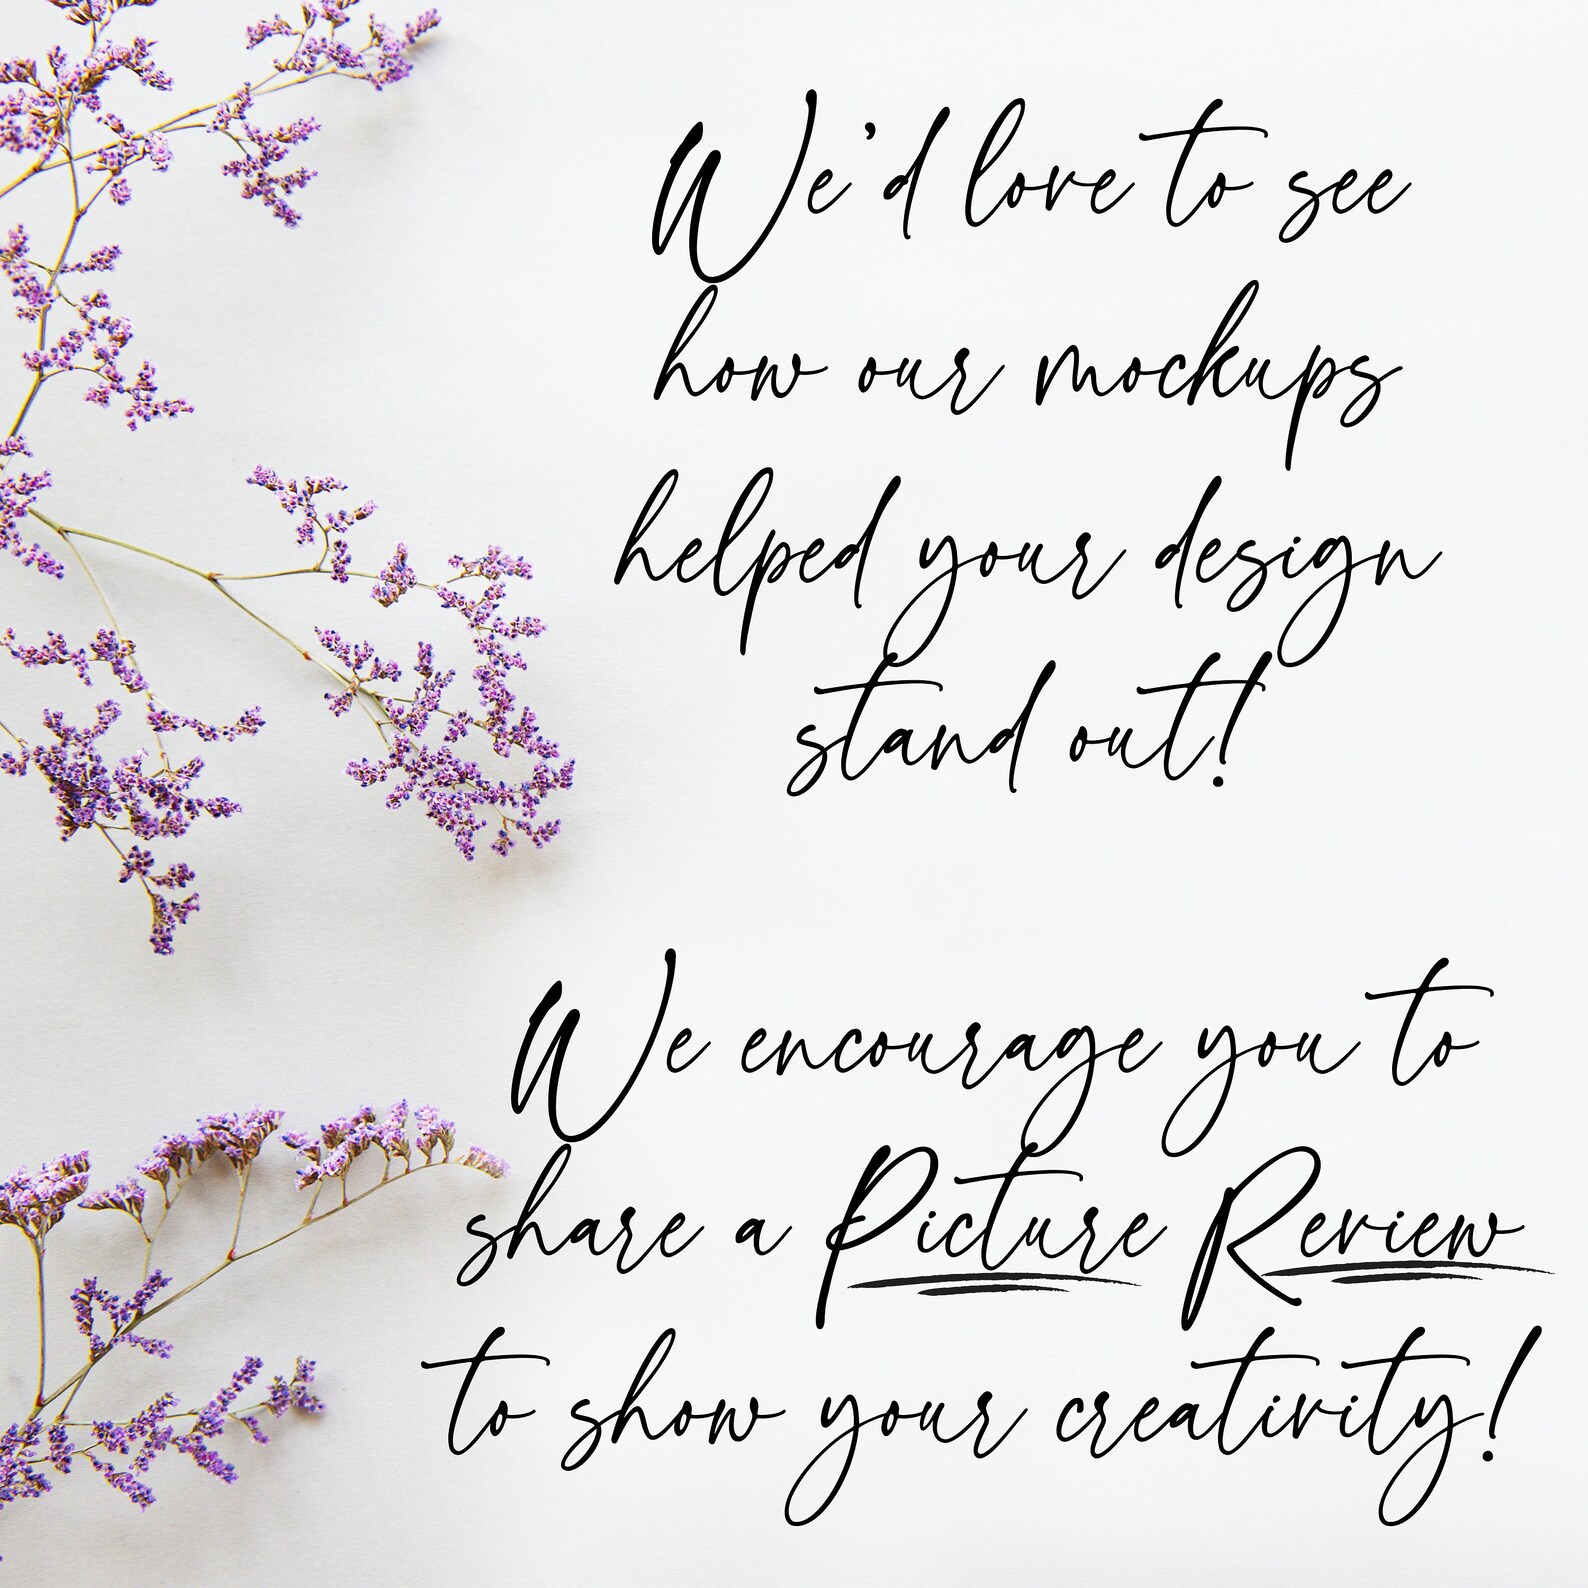 We'd love to see
how our mockups
helped your design
stand out!
We encourage you to
share a Picture Review
to show your creativity!